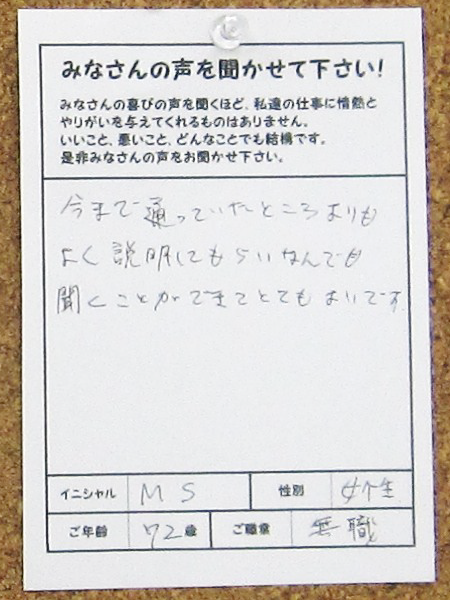 みなさんの声を聞かせて下さい!
みなさんの喜びの声を聞くほど、私達の仕事に情熱と
やりがいを与えてくれるものはありません。
いいこと、悪いこと、どんなことでも結構です。
是非みなさんの声をお聞かせ下さい。
今まで通っていたところよりも
よく説明してもらいなんでも
聞くことができてとてもよいです
イニシャル MS 性別 女性
ご年齢 72歳 ご職業 無職